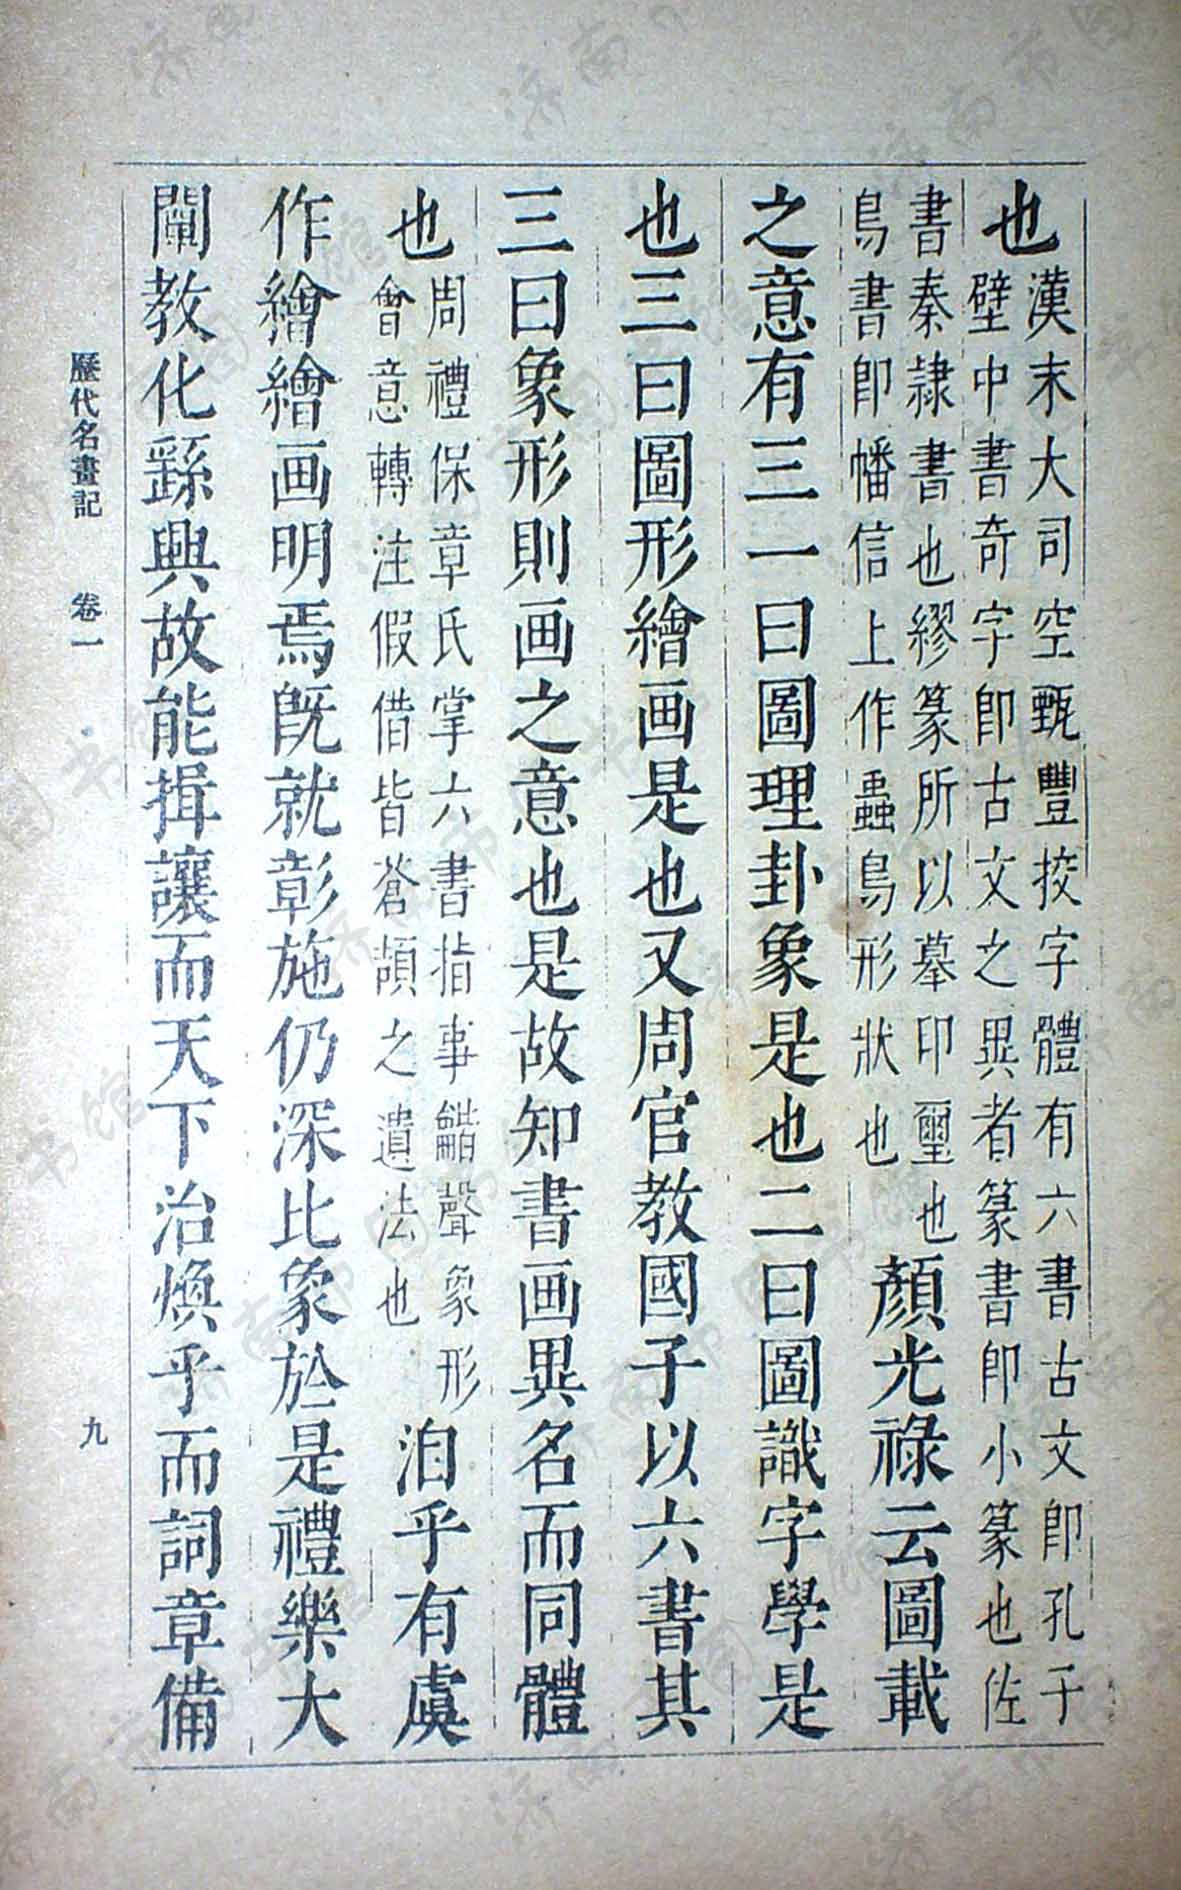 也漢末大司空甄豐挍字體有六書古文即孔子
壁中書奇字即古文之異者篆書即小篆也佐
書秦隷書也繆篆所以摹印璽也
鳥書即幡信上作蟲鳥形狀也顏光祿云圖載
之意有三一曰圖理卦象是也二曰圖識字學是
也三曰圖形繪画是也又周官教國子以六書其
三曰象形則画之意也是故知書画異名而同體
也周禮保章氏掌六書指事諧聲象形
會意轉注假借皆蒼頡之遺法也洎乎有虞
作繪繪画明焉旣就彰施仍深比象於是禮樂大
闡教化繇興故能揖讓而天下治煥乎而詞章備
歷代名畫記 卷一 九